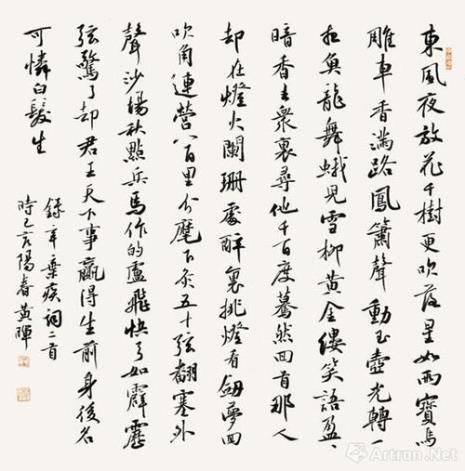 東風夜放花千樹更吹落星如雨寶馬
雕車香滿路鳳簫聲動玉壺光轉一
夜魚龍舞蛾兒雪柳黃金縷笑語盈々
暗香去衆裏尋他千百度驀然回首那人
却在燈火闌珊處醉裏挑燈看劍夢回
吹角連營八百里分麾下炙五十弦翻塞外
聲沙場秋點兵馬作的盧飛快弓如霹靂
弦驚了却君王天下事贏得生前身後名
可憐白髮生
錄辛棄疾詞二首
時己亥陽春黃暉
Artron.Net